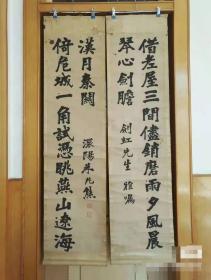 借老屋三間儘銷磨雨夕風晨
琴心劍膽
劍虹先生 雅囑
倚危城一角試憑眺燕山遼海
漢月秦關